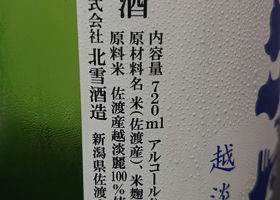 酒
内容量 720ml アルコール
原材料名 米(佐渡産)、米麹
原料米 佐渡産越淡麗100%使
式会社 北雪酒造 新潟県佐渡
越淡